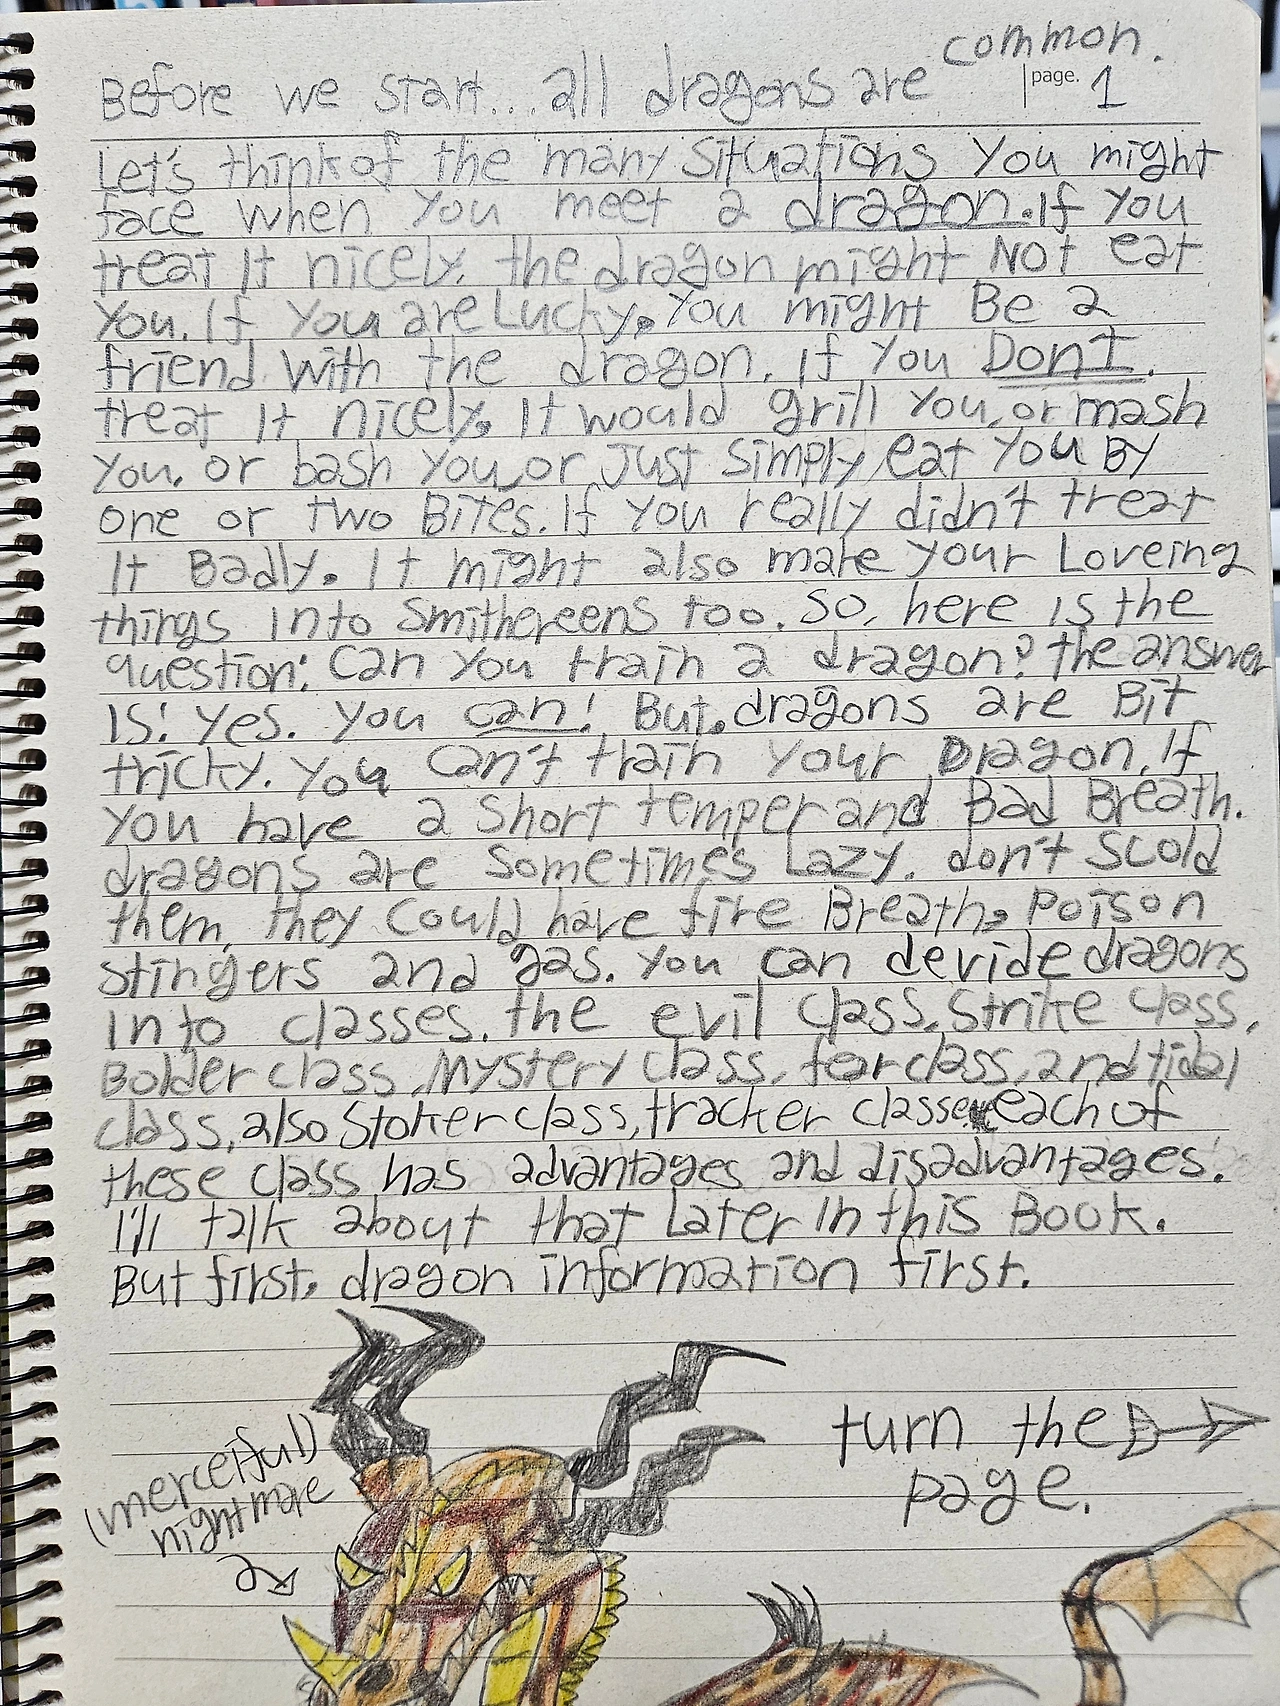 common.
Before we start... all dragons are
page. 1
Let's think of the many Situations You might
face when you meet a dragon. If You
treat It nicely, the dragon might NOT eat
You. If You are Lucky, You might Be a
friend with the dragon. If You Don't.
treat It nicely, It would grill You, or mash
You, or bash You, or Just Simply eat You By
one or two Bites. If You really didn't treat
It Badly. It might also make your Loveing
things Into Smithereens too. So, here is the
question: Can you train a dragon? the answer
IS! Yes. You can! But, dragons are Bit
tricky. You can't train your Dragon, If
You have a Short temper and Bad Breath.
dragons are Sometimes Lazy, don't scold
them, they could have fire Breath, Poison
Stingers and gas. You can devide dragons
Into classes. the evil class, Strike class,
Bolder class, Mystery class, fear class, and tidal
class, also Stoker class, tracker classe each of
these class has advantages and disadvantages.
I'll talk about that Later In this Book.
But first, dragon information first.
turn the
page.
(merceiful)
nightmare